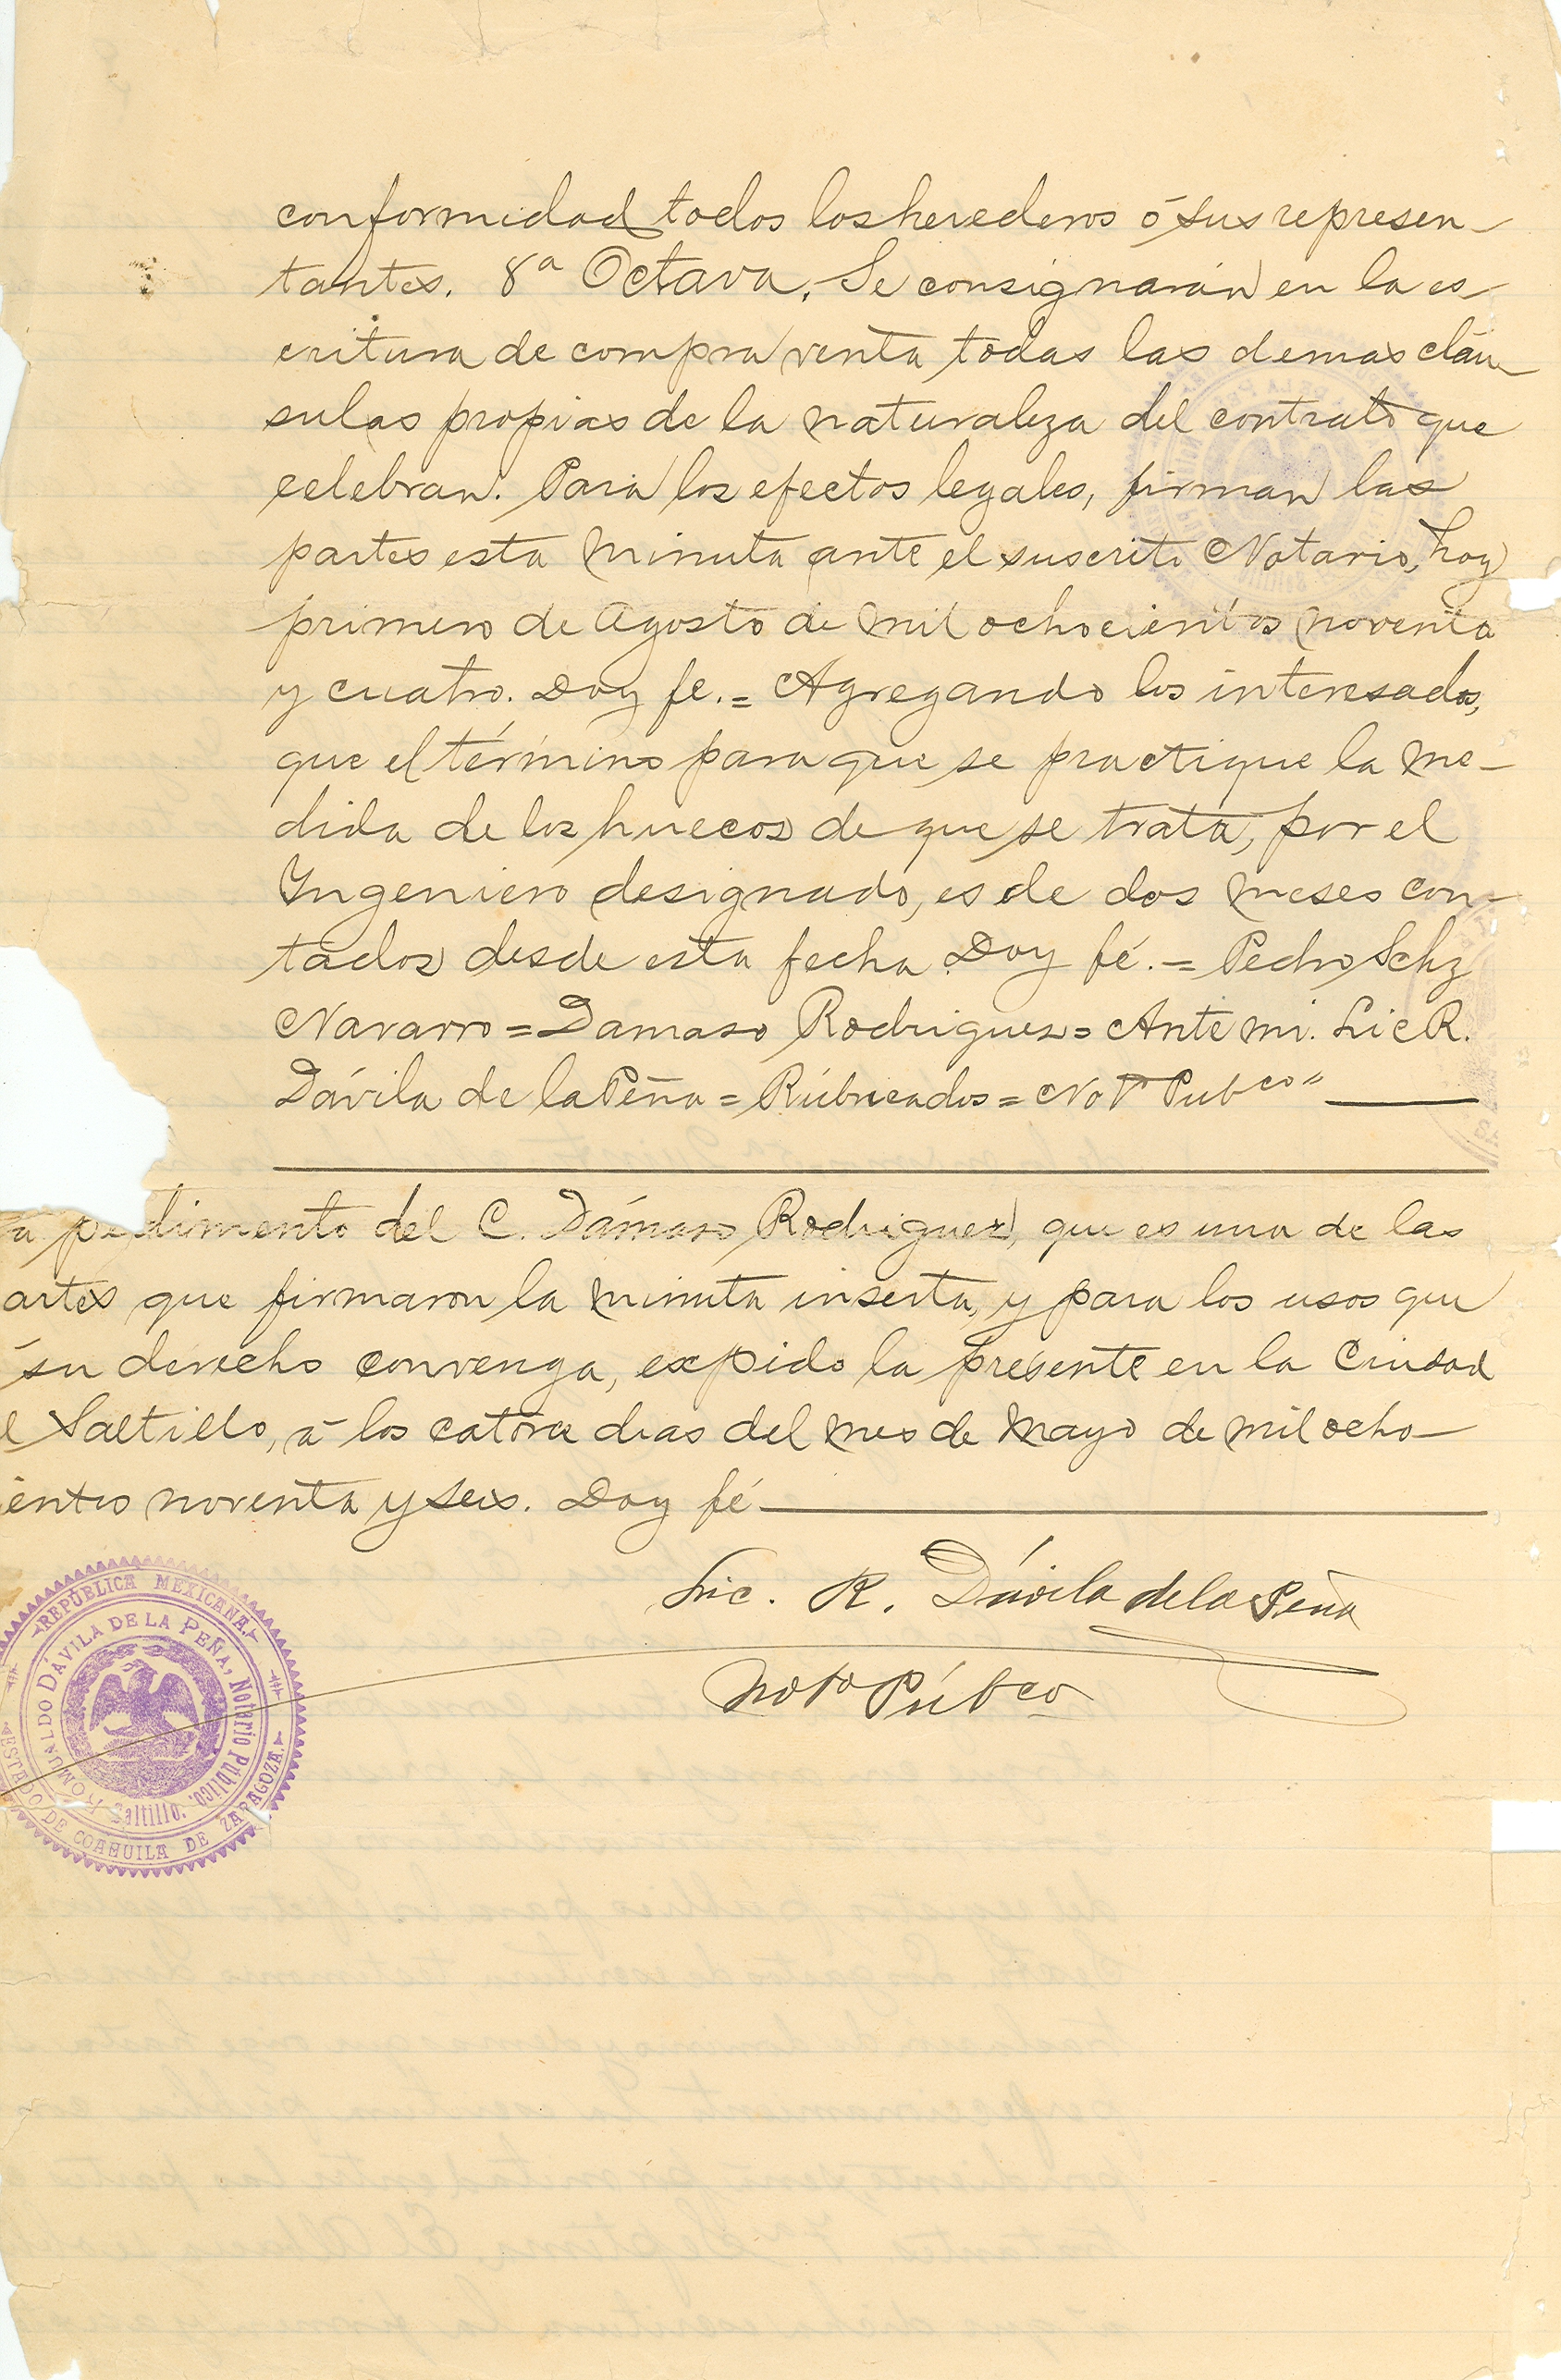 conformidad todos los herederos ó sus represen-
tantes. 8ª Octava. Se consignarán en la es-
critura de compra venta todas las demas cláu-
sulas propias de la naturaleza del contrato que
celebran. Para los efectos legales, firman las
partes esta minuta ante el suscrito Notario, hoy
primero de Agosto de mil ochocientos noventa
y cuatro. Doy fe. = Agregando los interesados,
que el término para que se practique la me-
dida de los huecos de que se trata, por el
Ingeniero designado, es de dos meses con-
tados desde esta fecha. Doy fé. = Pedro Schz
Navarro = Damaso Rodriguez = Ante mi. Lic R.
Dávila de la Peña = Rúbricados = Notº Pubco"
a pedimento del C. Dámaso Rodriguez, que es una de las
artes que firmaron la minuta inserta, y para los usos que
su derecho convenga, expido la presente en la Ciudad
l Saltillo, á los catorce dias del mes de Mayo de mil ocho-
ientos noventa y seis. Doy fé
Lic. R. Dávila de la Peña
Notº Púbco
REPÚBLICA MEXICANA.
ROMUALDO DÁVILA DE LA PEÑA, Notario Público.
Saltillo.
ESTADO DE COAHUILA DE ZARAGOZA.